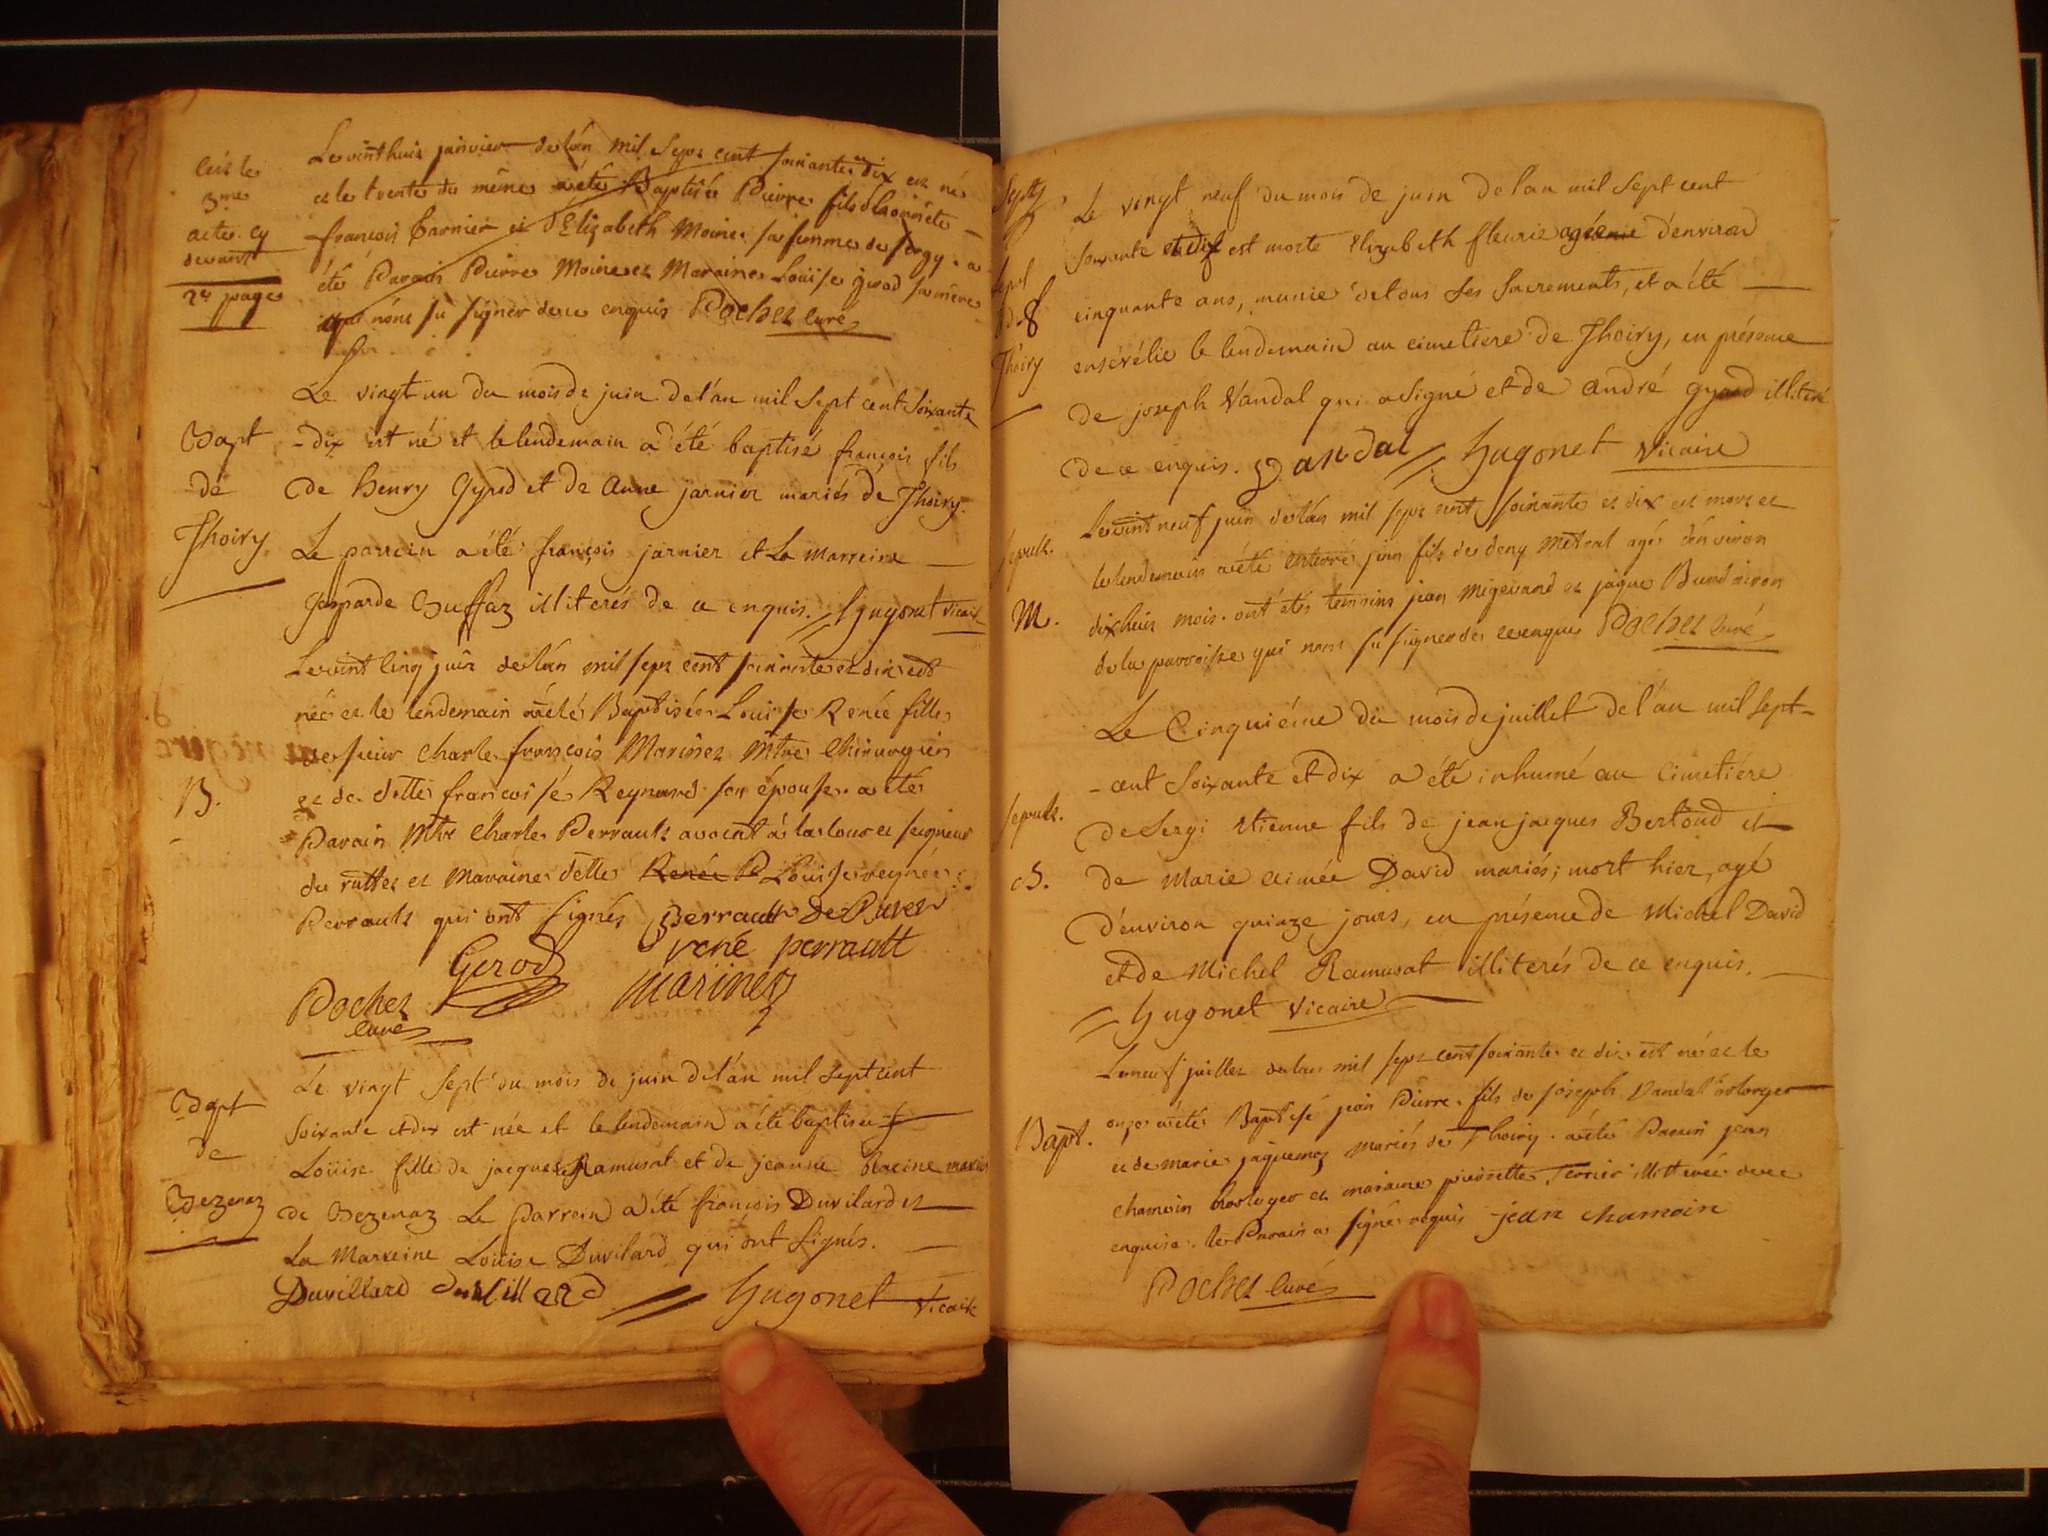 Le vint huit janvier de lán mil sept cent soixante et dix est né
et le trente du même a été Baptisée Pierre fils d'honnête
françois Tarnier et d'Elizabeth Moine sa femme de sergy. a
été Parain Pierre Moine et Maraine Louise girod sa mère
qui n'ónt sú signer de ce enquis Pochet Curé
C'est le
3me
acte cy
devant
2de page
Le vingt un du mois de juin de l'an mil sept cent soixante
-dix est né et le lendemain a été baptisé françois fils
de henry Gyrod et de Anne jarnier mariés de Thoiry.
Le parrein a été françois jarnier et La Marreine
Gasparde Buffaz illiterés de ce enquis. Hugonet vicaire
Bapt
de
Thoiry
Le vint Cinq juin de lán mil sept cent soixante et dix est
née et le lendemain a été Baptisée Louise Renée fille
de sieur Charle françois Marinet Mtre Chirurgien
et de dlle francoise Reynard son épouse a étés
Parain Mtre Charle Perrault avocat á la Cour et seigneur
de ruttet et Maraine delle Renée P Louise reynée
Perrault qui ont signés Perrault De Rutet
B.
Gerod renė perrault
Pochet Marinet
Curé
Le vingt sept du mois de juin de l'an mil sept cent
soixante et dix est née et le lendemain a été baptisée
Loüise fille de jacques Ramusat et de jeanne Racine mariés
de Bezenaz Le Parrein a été françois Duvilard et
La Marreine Loüise Duvilard qui ont signés.
Duvillard duvillard Hugonet Vicaire
Bapt
de
Bezenaz
Le vingt neuf du mois de juin de l'an mil sept cent
soixante et dix est morte Elizabeth fleurie agée d'environ
cinquante ans, munie de tous ses sacrements, et a été
ensevélie le lendemain au cimetiere de Thoiry, en présence
de joseph Vandal qui a signé et de andré gyrod illiteré
de ce enquis. Vandal Hugonet Vicaire
Sepul
de
Thoiry
Le vint neuf juin de lán mil sept cent soixante et dix est mort et
le lendemain a été enterré jean fils de deny Metral agé d'environ
dix huit mois. ont étés temoins jean Megevand et jaque Bundairon
de la parroisse qui nont sú signer de ce enquis Pochet Curé
Sepult.
M.
Le Cinquiéme du mois de juillet de l'an mil sept-
-cent soixante et dix a été inhumé au Cimetiére
de Sergi Etienne fils de jean jacques Bertoud et
de Marie aimée David mariés; mort hier, agé
d'environ quinze jours, en présence de Michel David
et de Michel Ramusat illiterés de ce enquis.
Hugonet Vicaire
Sepult.
B.
Le neuf juillet de lan mil sept cent soixante et dix est né et le
onze a été Baptisé jean Pierre fils de joseph Vandal orloger
et de marie jaquemoz mariés de Thoiry. a été Parain jean
chamoin horloger et maraine pierrette Ternier illiterée de ce
enquise. le Parain a signé requis jean chamoin
Pochet Curé
Bapt.